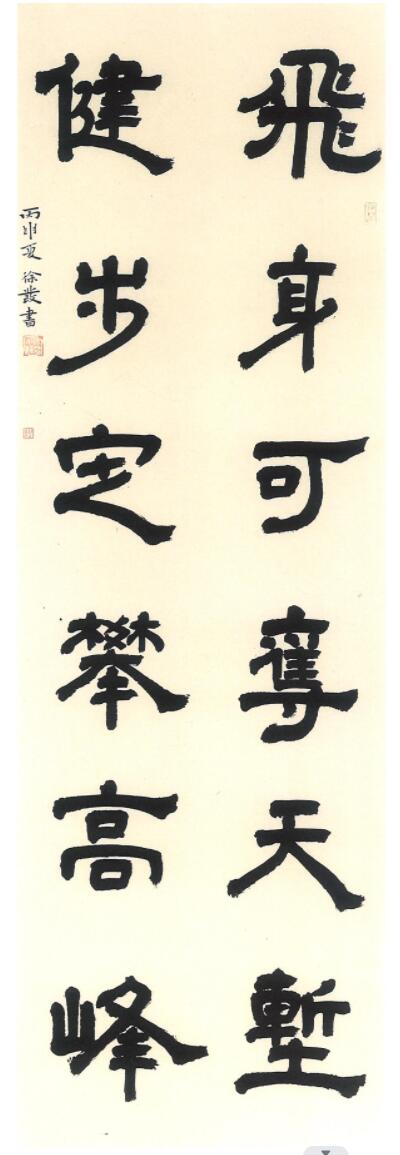 飛身可奪天塹
健步定攀高峰
丙申夏徐叢書